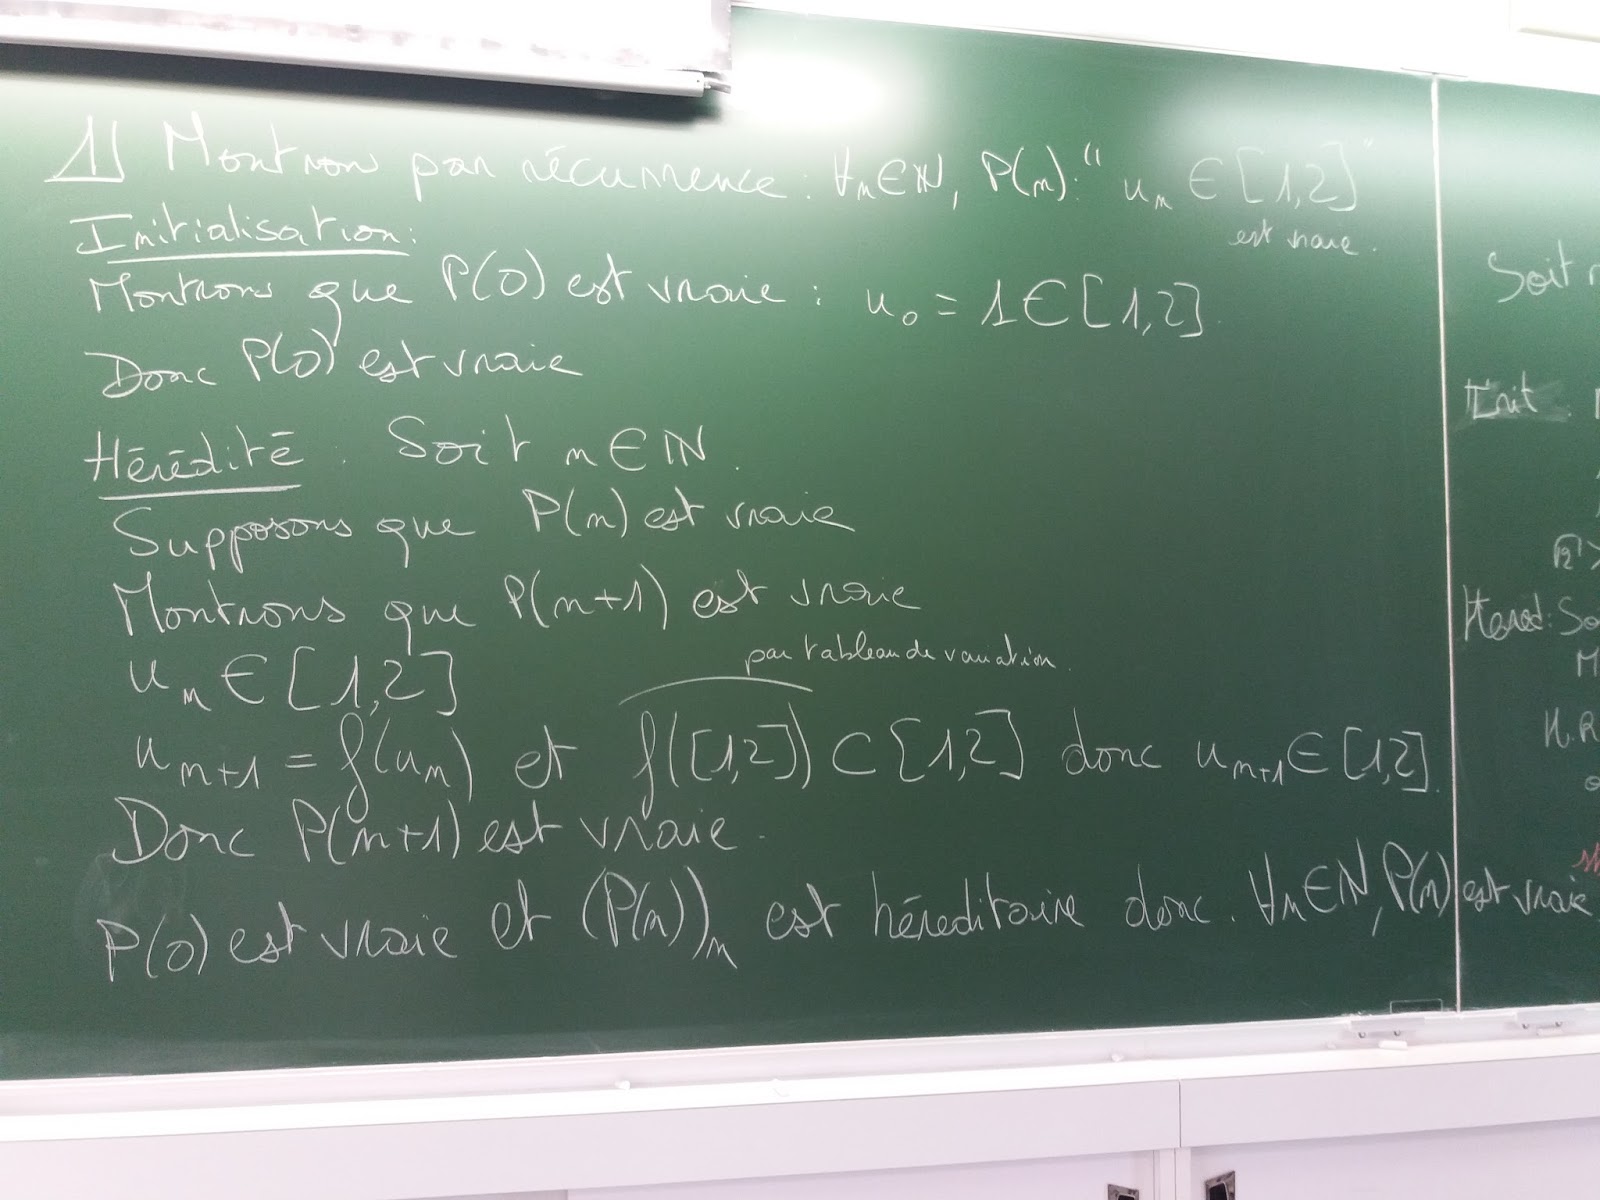 1) Montron par récurrence : ∀n∈ℕ, P(n): "un ∈ [1,2]"
est vraie.
Initialisation:
Montrons que P(0) est vraie : u0 = 1 ∈ [1,2]
Donc P(0) est vraie
Hérédité. Soit n∈ℕ.
Supposons que P(n) est vraie
Montrons que P(n+1) est vraie
par tableau de variation.
un ∈ [1,2]
un+1 = f(un) et f([1,2]) ⊂ [1,2] donc un+1 ∈ [1,2].
Donc P(n+1) est vraie.
P(0) est vraie et (P(n))n est héréditaire donc. ∀n∈ℕ, P(n) est vraie
Soit
Init.
Hered: So
M
H.R